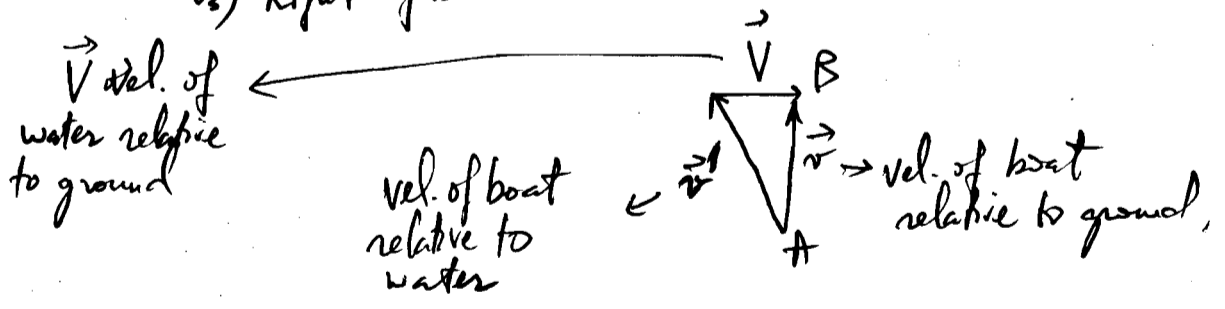 V⃗ vel. of
water relative
to ground
V⃗
B
v⃗'
v⃗
A
vel. of boat
relative to
water
vel. of boat
relative to ground,